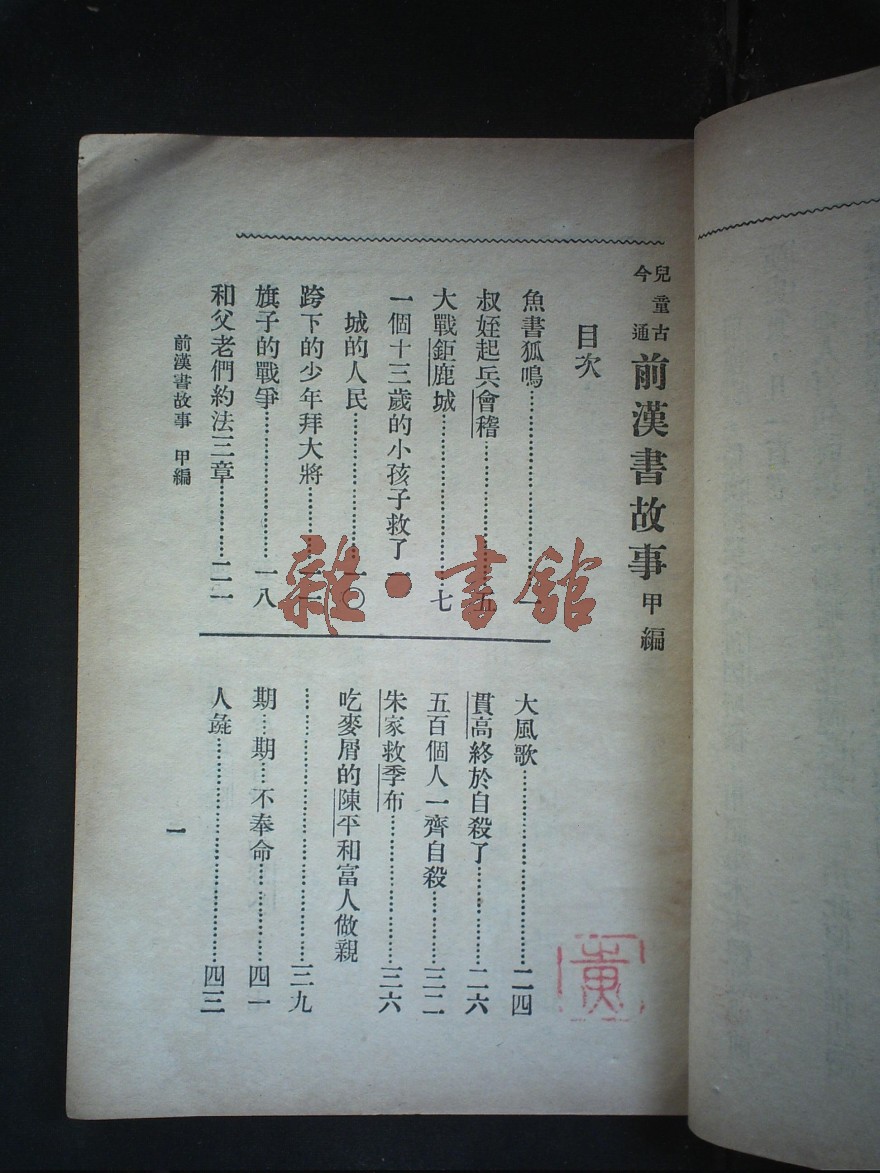 兒童古今通
前漢書故事 甲編
目次
魚書狐鳴……一
叔姪起兵會稽……五
大戰鉅鹿城……七
一個十三歲的小孩子救了一
城的人民……一〇
跨下的少年拜大將……一一
旗子的戰爭……一八
和父老們約法三章……二一
大風歌……二四
貫高終於自殺了……二六
五百個人一齊自殺……三二
朱家救季布……三六
吃麥屑的陳平和富人做親
……三九
期…期…不奉命……四一
人彘……四三
前漢書故事 甲編
一
雜·書館
黄